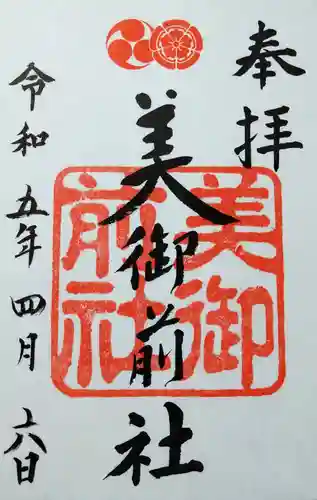 奉拝
美御前社
美御
前社
令和五年四月十六日